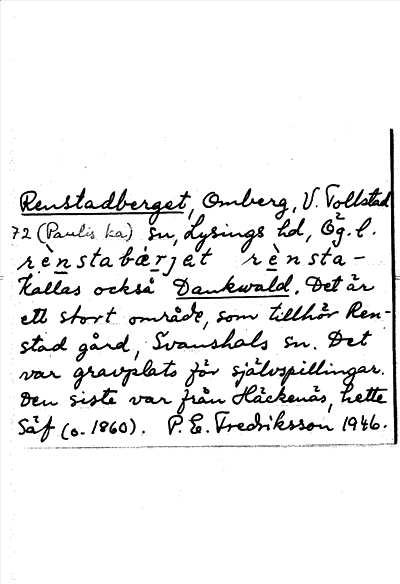 Renstadberget, Omberg, V. Tollstad
72 (Paulis ka) sn, Lysings hd, Ög. l.
rènstabærjet rènsta-
Kallas också Dankwald. Det är
ett stort område, som tillhör Ren-
stad gård, Svanshals sn. Det
var gravplats för självspillingar.
Den siste var från Häckenäs, hette
Säf (o. 1860). P. E. Fredriksson 1946.